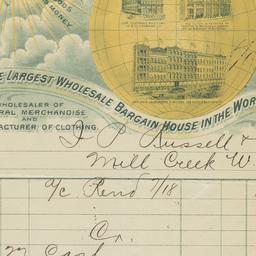 OODS
MONEY
E LARGEST WHOLESALE BARGAIN HOUSE IN THE WOR
WHOLESALER OF
RAL MERCHANDISE
AND
FACTURER OF CLOTHING.
J P Russell &
Mill Creek W.
a/c Rend 7/18
Cr.
Cash